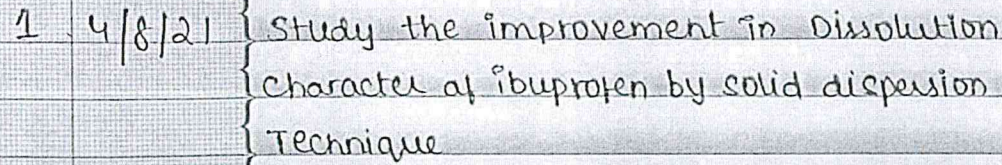 1 4/8/21 Study the improvement in Dissolution
character of ibuprofen by solid dispersion
Technique